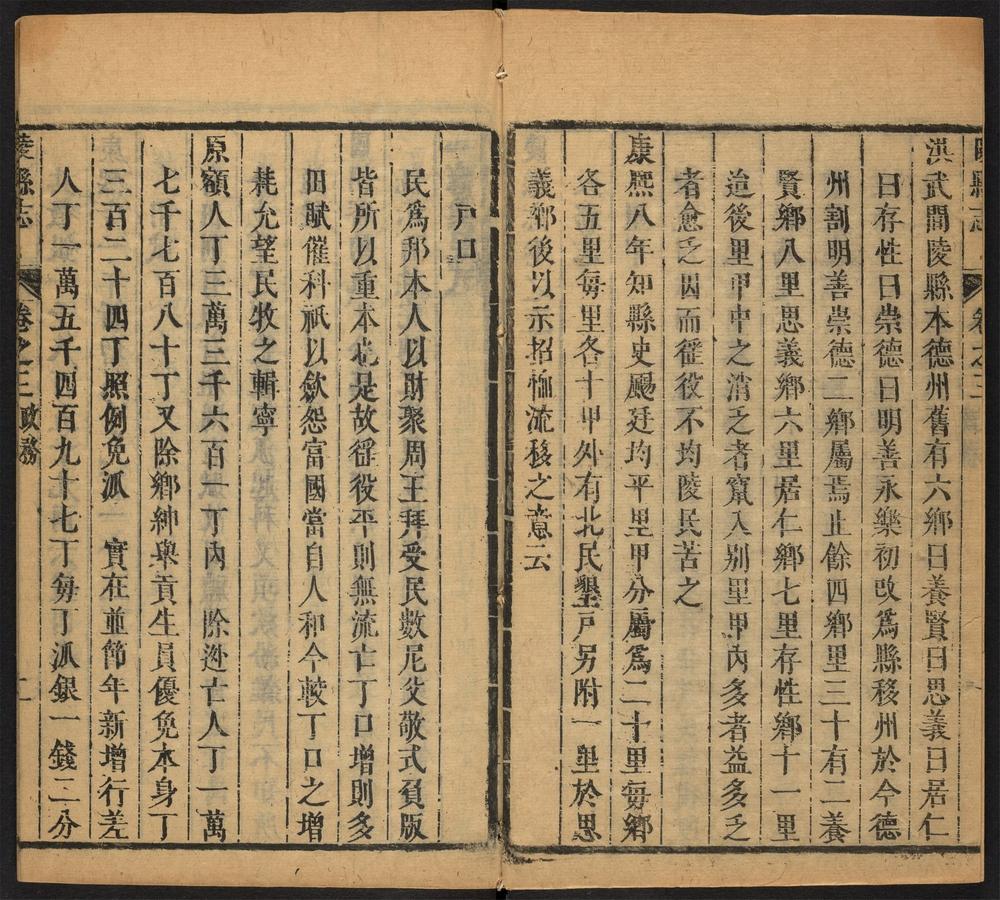 陵縣志 卷之三
洪武間陵縣本德州舊有六鄉曰養賢曰思義曰居仁
曰存性曰崇德曰明善永樂初改爲縣移州於今德
州割明善崇德二鄉屬焉止餘四鄉里三十有二養
賢鄉八里思義鄉六里居仁鄉七里存性鄉十一里
迨後里甲中之消乏者竄入别里甲內多者益多乏
者愈乏因而徭役不均陵民苦之
康熙八年知縣史颺廷均平里甲分屬爲二十里每鄉
各五里每里各十甲外有北民墾戸另附一里於思
義鄉後以示招恤流移之意云
戸口
民爲邦本人以財聚周王拜受民數尼父敬式負版
皆所以重本也是故徭役平則無流亡丁口增則多
田賦催科祇以歛怨富國當自人和今較丁口之增
耗允望民牧之輯寧
原額人丁三萬三千六百一丁內 除逃亡人丁一萬
七千七百八十丁又除鄉紳舉貢生員優免本身丁
三百二十四丁照例免派 實在並節年新增行差
人丁一萬五千四百九十七丁每丁派銀一錢二分
陵縣志 卷之三 政務 二